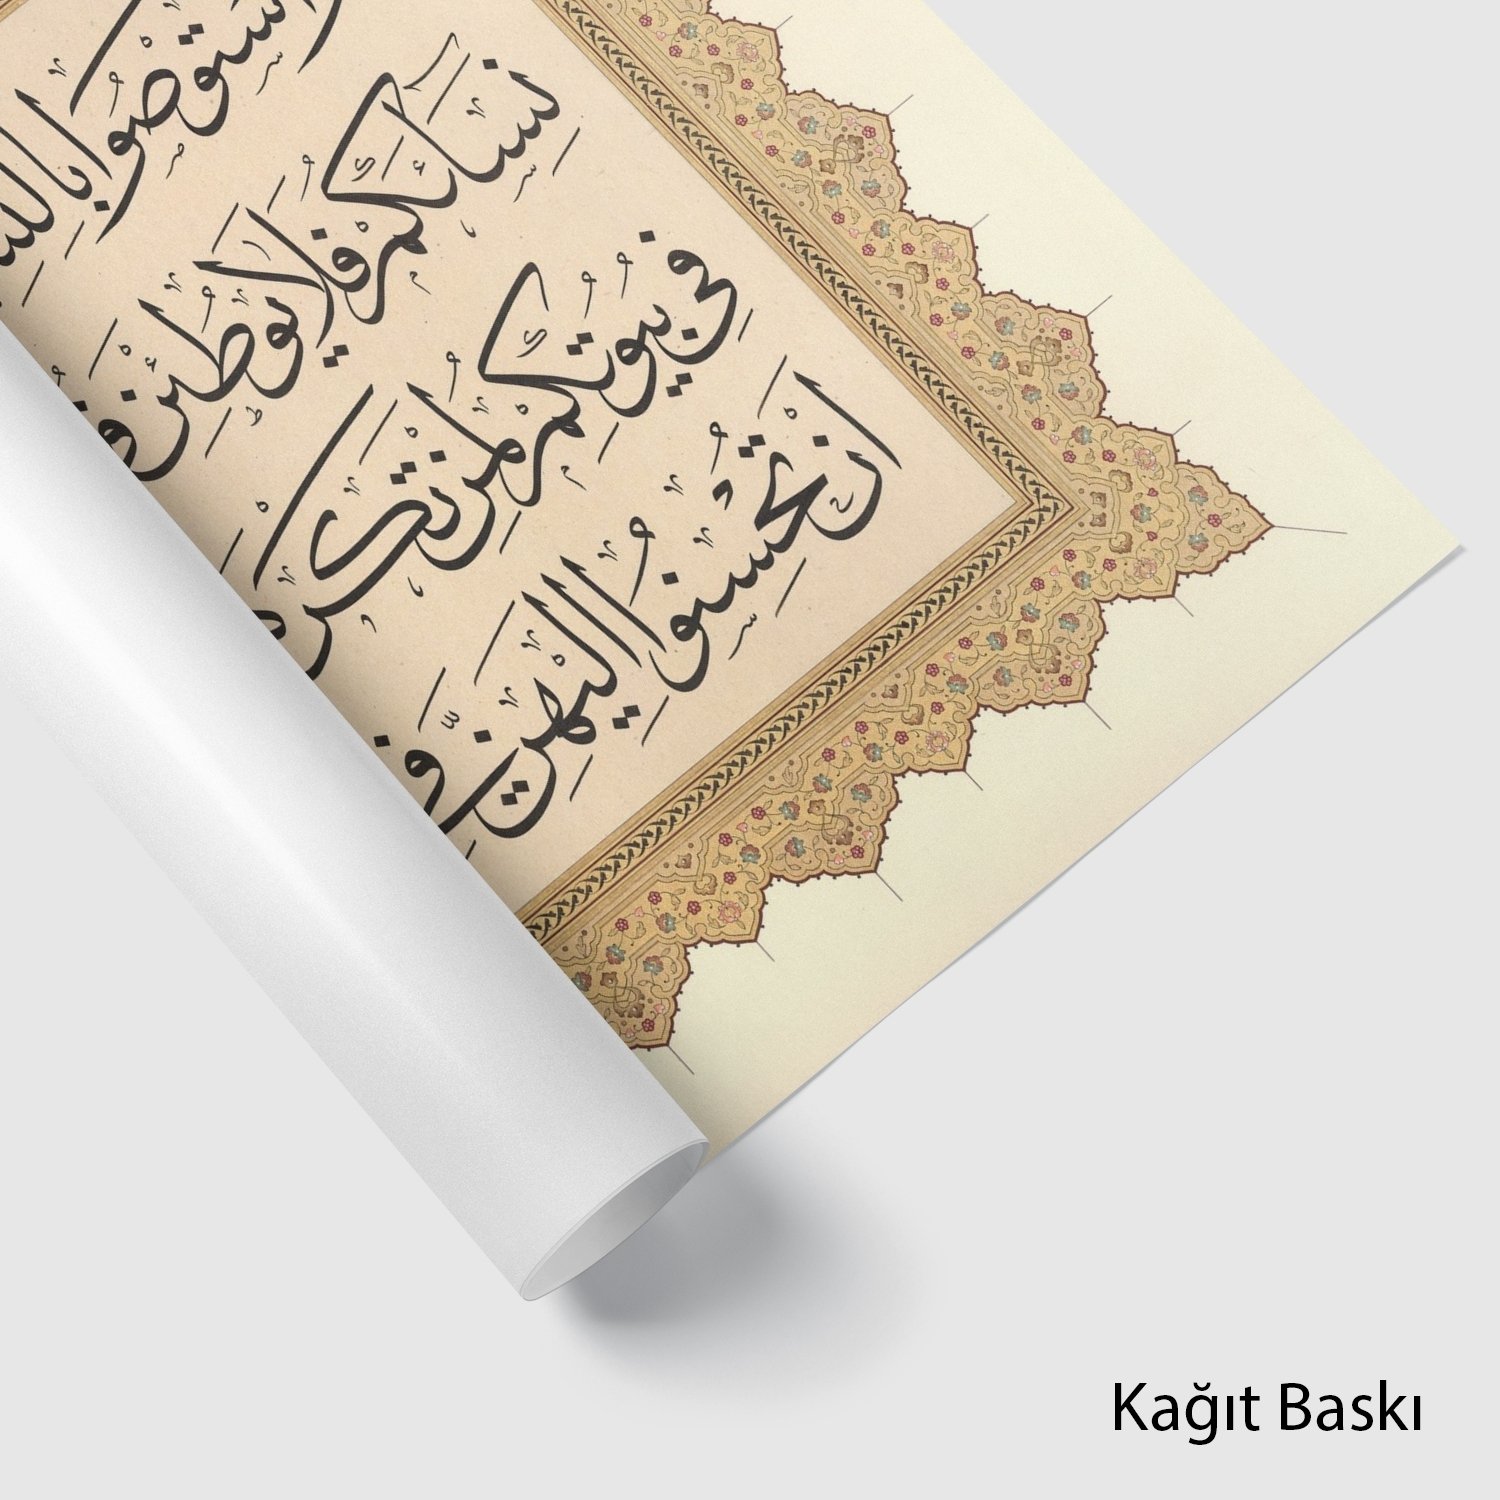 وَاسْتَوْصُوا
نِسَائِكُمْ فَلَا يُوطِئْنَ
فِي بُيُوتِكُمْ لِمَنْ
اَنْ تُحْسِنُوا اِلَيْهِنَّ
Kağıt Baskı